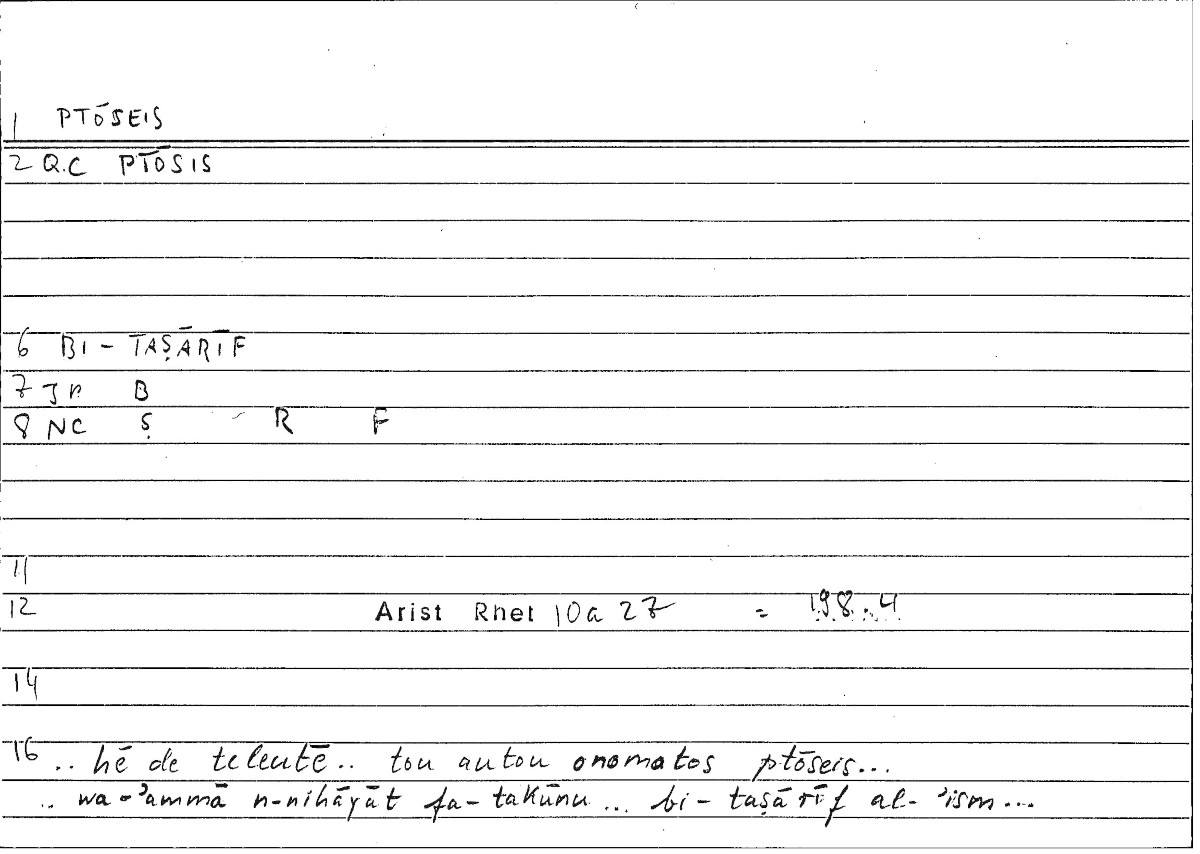 1 PTŌSEIS
2 Q.C PTŌSIS
6 BI - TAṢĀRĪF
7 B
8 NC Ṣ R F
11
12 Arist Rhet 10a 27 = 198.4
14
16 .. hē de teleutē.. tou autou onomatos ptōseis...
.. wa-ʾammā n-nihāyāt fa-takūnu ... bi-taṣārīf al-ʾism...